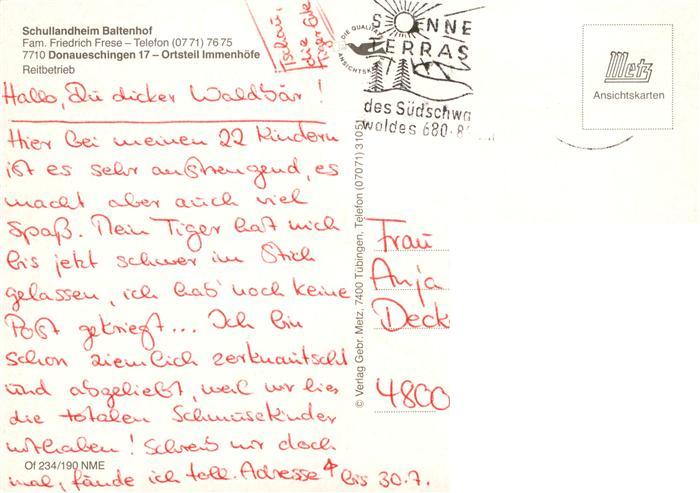 Schullandheim Baltenhof
Fam. Friedrich Frese – Telefon (07 71) 76 75
7710 Donaueschingen 17 – Ortsteil Immenhöfe
Reitbetrieb
Tschau,
die Ente
Tiger
Hallo, Du dicker Waldbär!
Hier bei meinen 22 Kindern
ist es sehr anstrengend, es
macht aber auch viel
Spaß. Mein Tiger hat mich
bis jetzt schwer im Stich
gelassen, ich hab' noch keine
Post gekriegt... Ich bin
schon ziemlich zerknautscht
und abgeliebt, weil wir hier
die totalen Schmusekinder
mithaben! Schreib mir doch
mal, fände ich toll. Adresse ↑ bis 30.7.
Of 234/190 NME
© Verlag Gebr. Metz, 7400 Tübingen, Telefon (07071) 31051
DIE QUALITÄ
ANSICHTSK
SONNE
TERRAS
des Südschwa
waldes 680-8
Metz
Ansichtskarten
Frau
Anja
Deck
4800